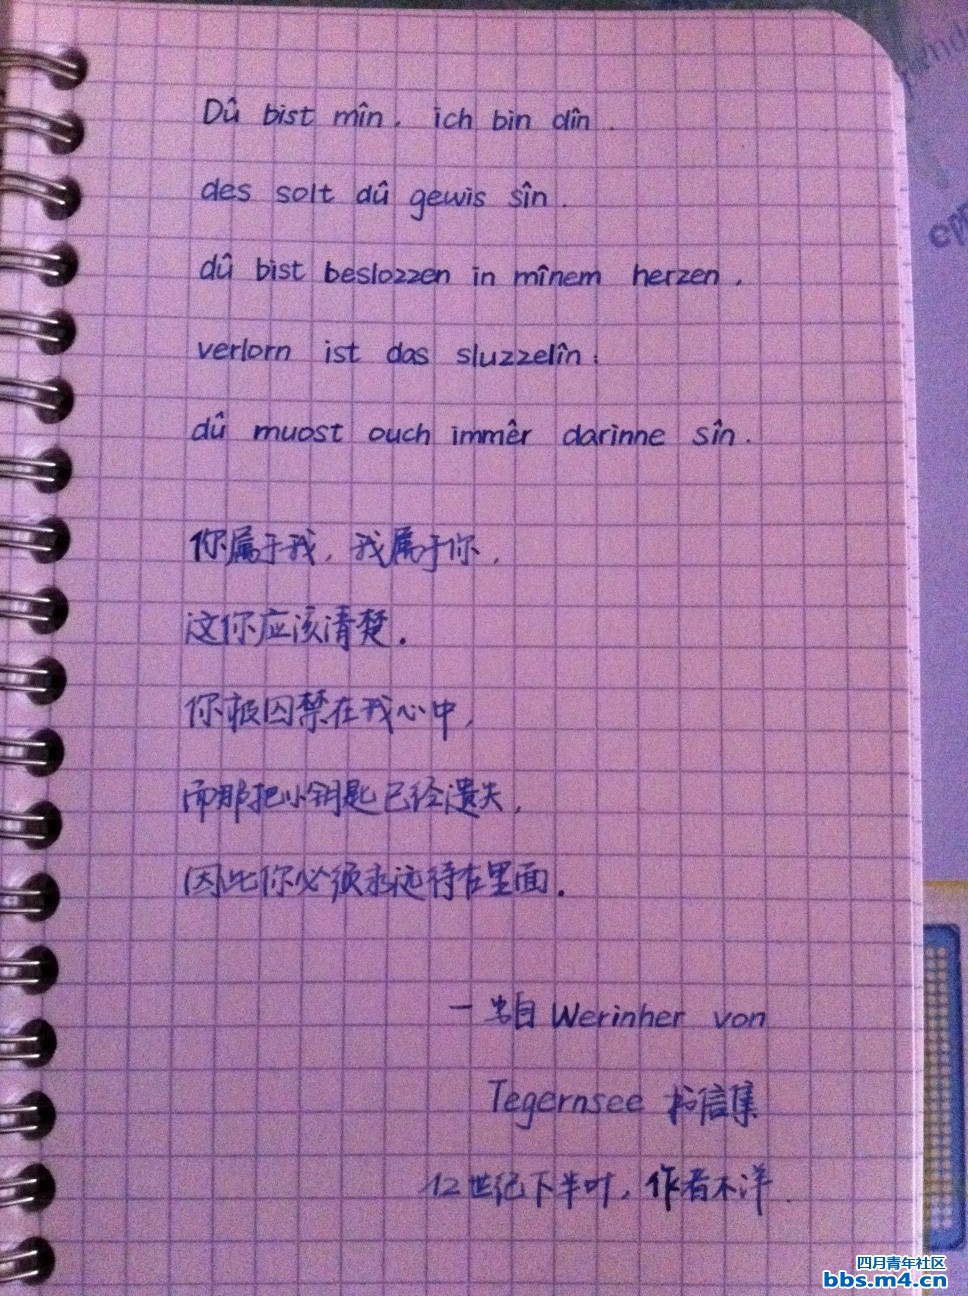 Dû bist mîn, ich bin dîn.
des solt dû gewis sîn.
dû bist beslozzen in mînem herzen,
verlorn ist das sluzzelîn:
dû muost ouch immêr darinne sîn.
你属于我，我属于你，
这你应该清楚．
你被囚禁在我心中，
而那把小钥匙已经遗失，
因此你必须永远待在里面．
一出自 Werinher von
Tegernsee 书信集
12世纪下半叶，作者不详．
四月青年社区
bbs.m4.cn